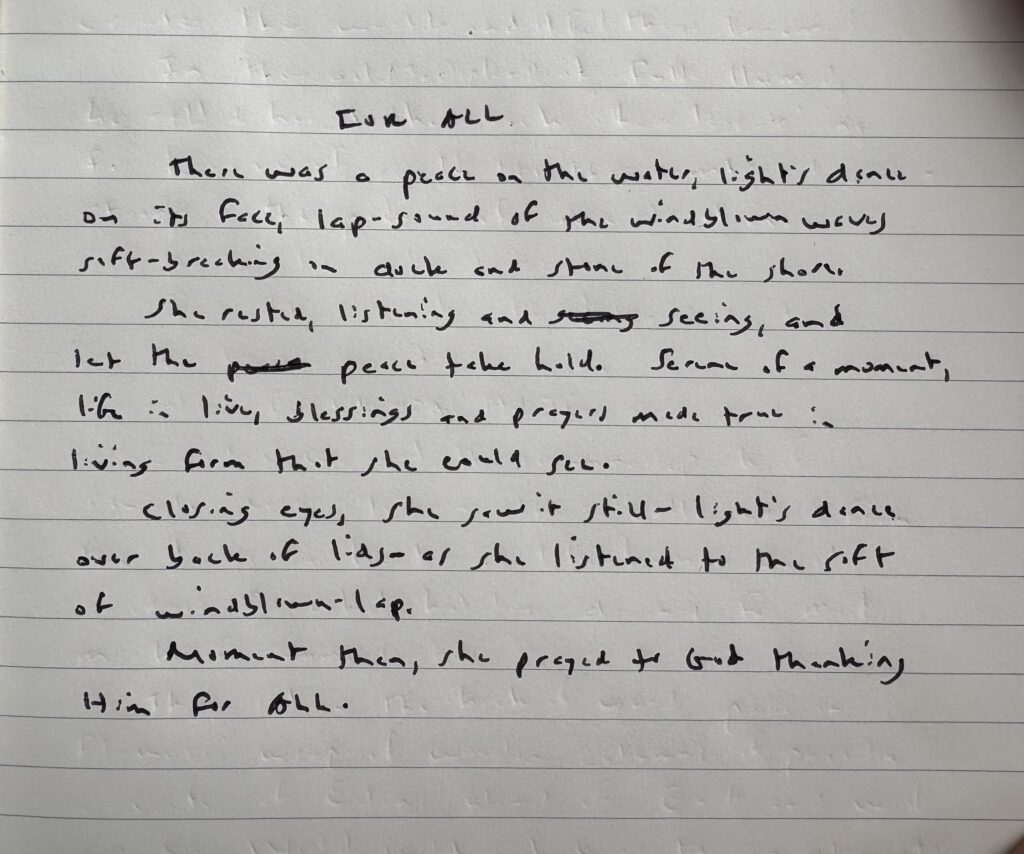 FOR ALL
There was a peace on the water, light's dance
on its face, lap-sound of the windblown waves
soft-breaking on dock and stone of the shore.
She rested, listening and seeing, and
let the peace take hold. Serene of a moment,
life in live, blessings and prayers made true in
living form that she could see.
Closing eyes, she saw it still- light's dance
over back of lids- as she listened to the soft
of windblown-lap.
Moment then, she prayed to God thanking
Him for ALL.